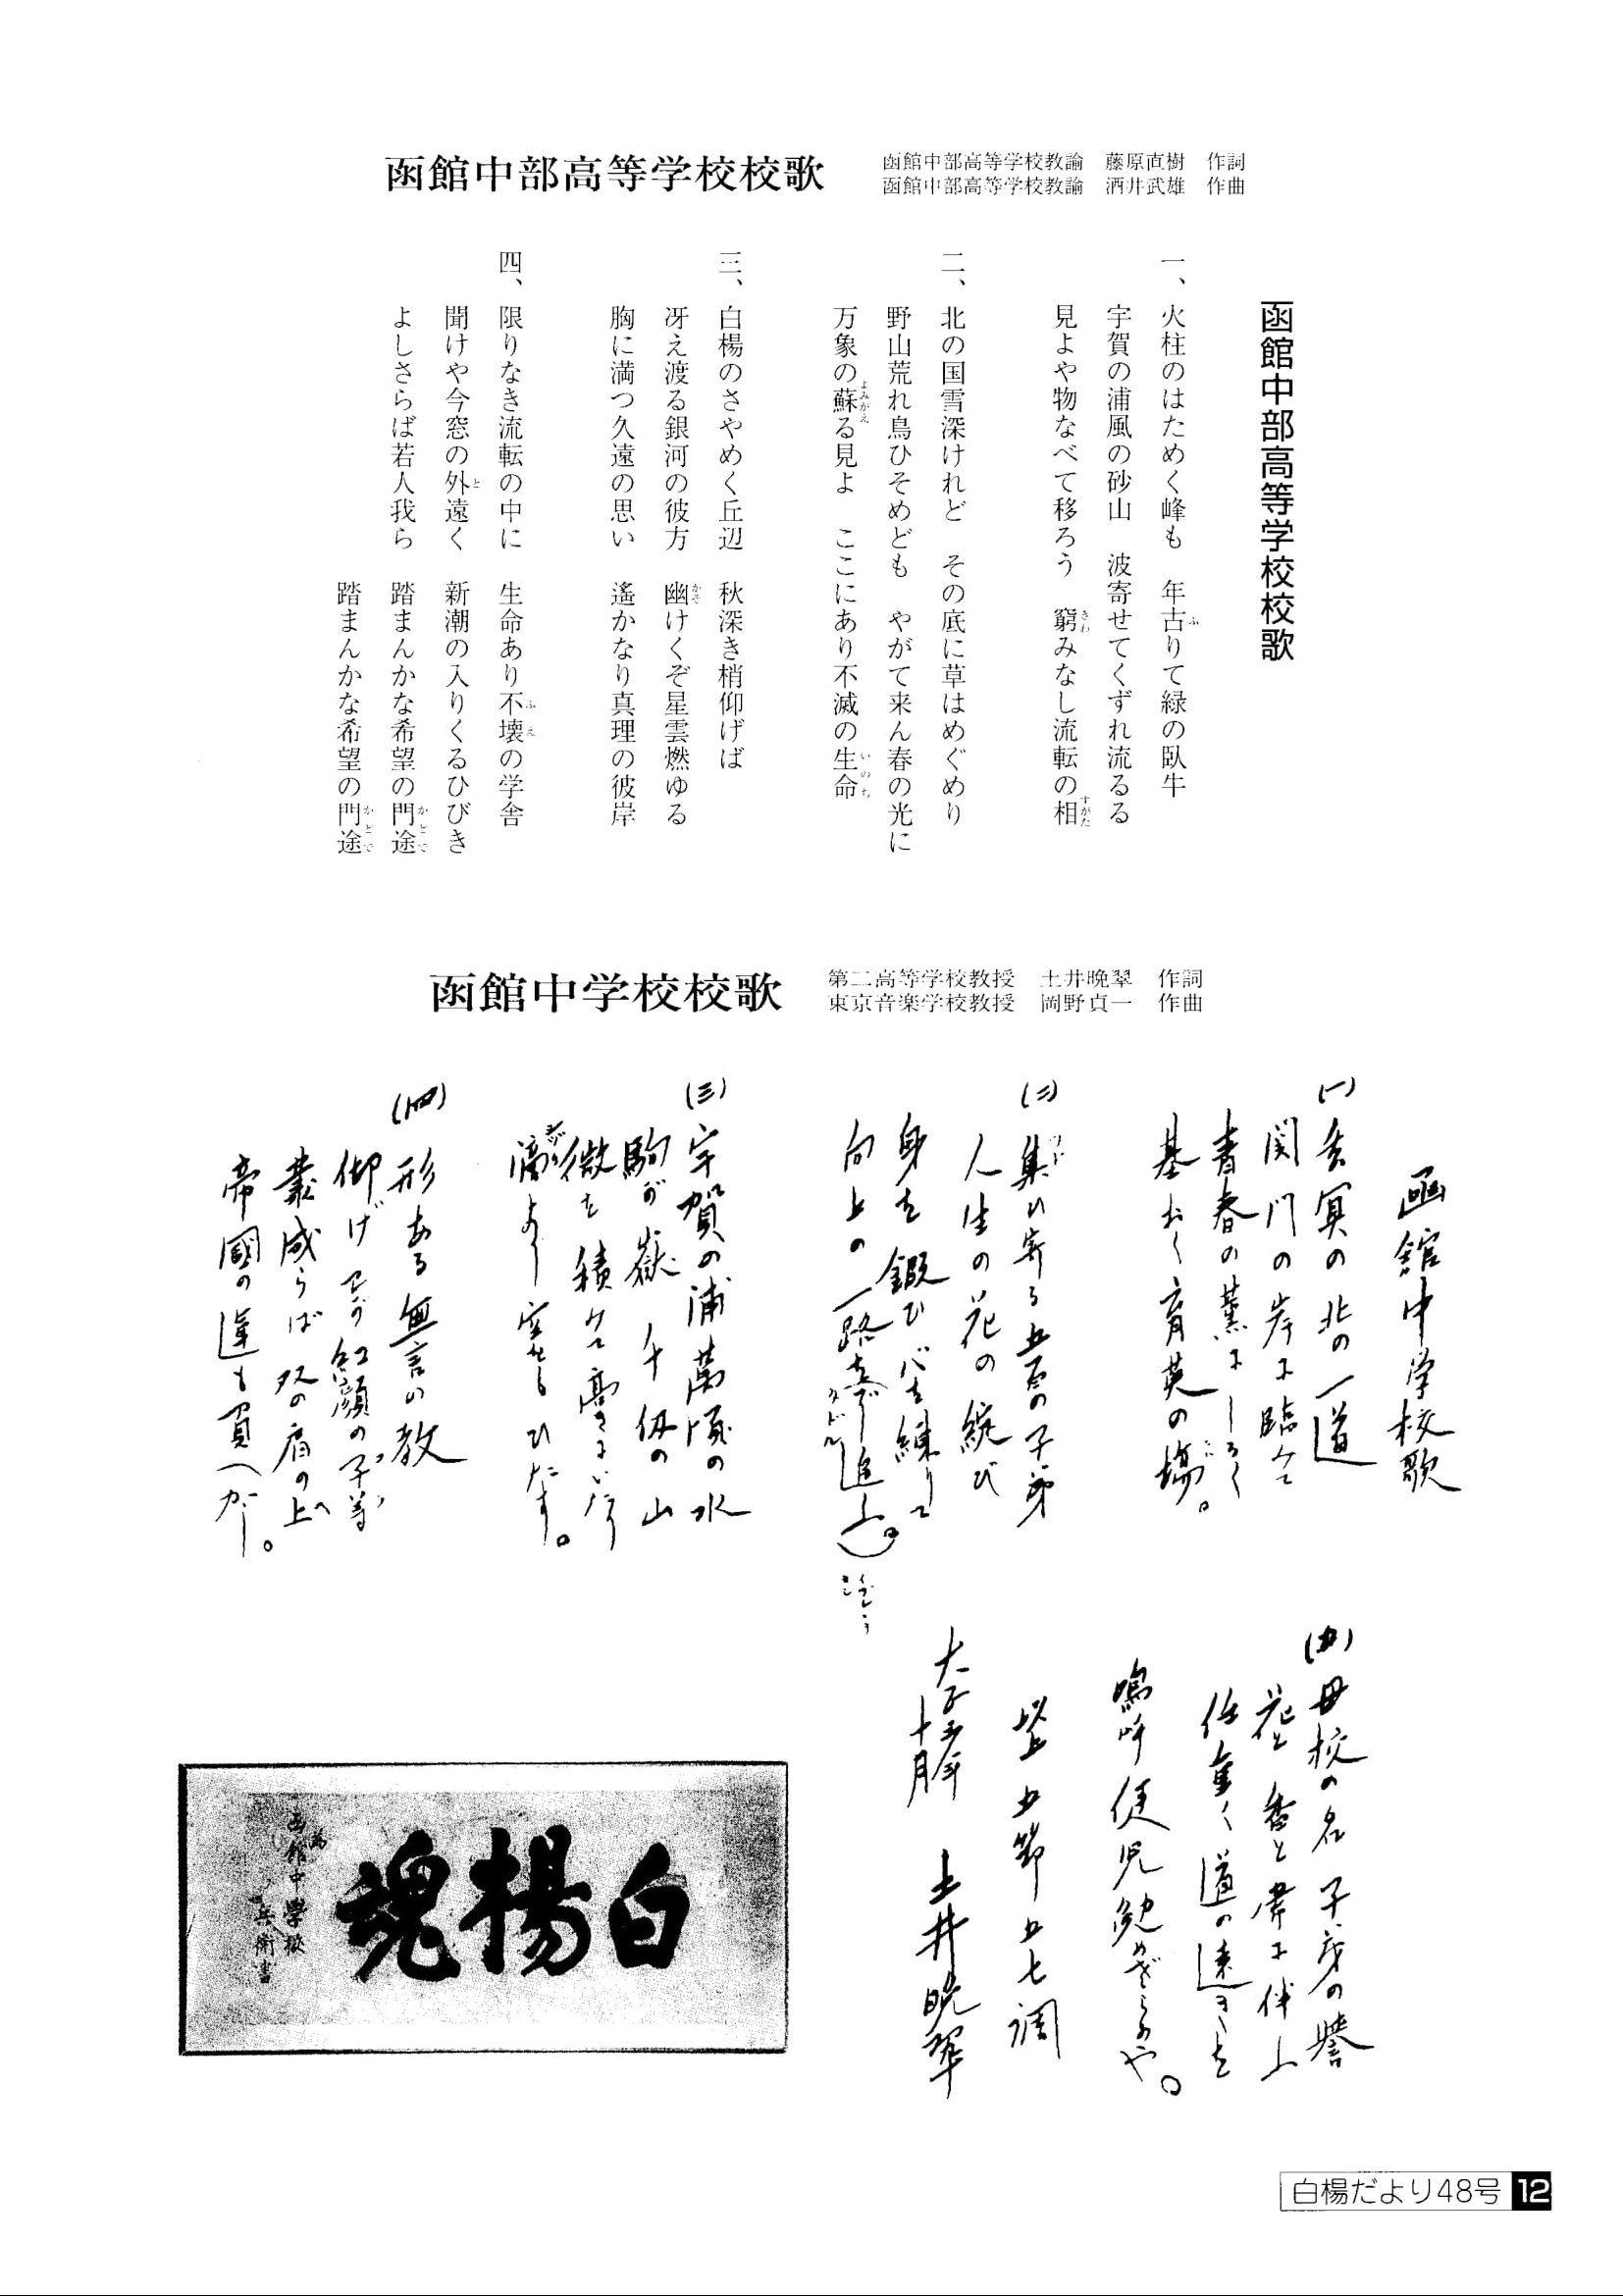 函館中部高等学校校歌
函館中部高等学校教諭　藤原直樹　作詞
函館中部高等学校教諭　酒井武雄　作曲
函館中部高等学校校歌
一、火柱のはためく峰も　年古りて緑の臥牛
宇賀の浦風の砂山　波寄せてくずれ流るる
見よや物なべて移ろう　窮みなし流転の相
二、北の国雪深けれど　その底に草はめぐめり
野山荒れ鳥ひそめども　やがて来ん春の光に
万象の蘇る見よ　ここにあり不滅の生命
三、白楊のさやめく丘辺　秋深き梢仰げば
冴え渡る銀河の彼方　幽けくぞ星雲燃ゆる
胸に満つ久遠の思い　遙かなり真理の彼岸
四、限りなき流転の中に　生命あり不壊の学舎
聞けや今窓の外遠く　新潮の入りくるひびき
よしさらば若人我ら　踏まんかな希望の門途
踏まんかな希望の門途
函館中学校校歌
第二高等学校教授　土井晩翠　作詞
東京音楽学校教授　岡野貞一　作曲
函館中学校校歌
(一)冥の北の一道
関門の岸に臨みて
青春の薫にしるく
基おく育英の場。
(二)集ひ寄る五百の子弟
人生の花の綻び
身を鍛ひ心を練りて
向上の一路を進ふ。
(三)宇賀の浦萬頃の水
駒が嶽千仞の山
微を積みて高きにいたり
滴より空をもひたす。
(四)形ある無言の教
仰げわが紅顔の子等
業成らば双の肩の上へ
帝國の運も負へかし。
(五)母校の名子弟の譽
花と香と常に伴ふ
任重く道の遠きを
嗚呼健児勉めざらめや。
以上 五節 五七調
大正五年十月　土井晩翠
白楊魂
為
函館中學校
兵衛書
白楊だより48号 12